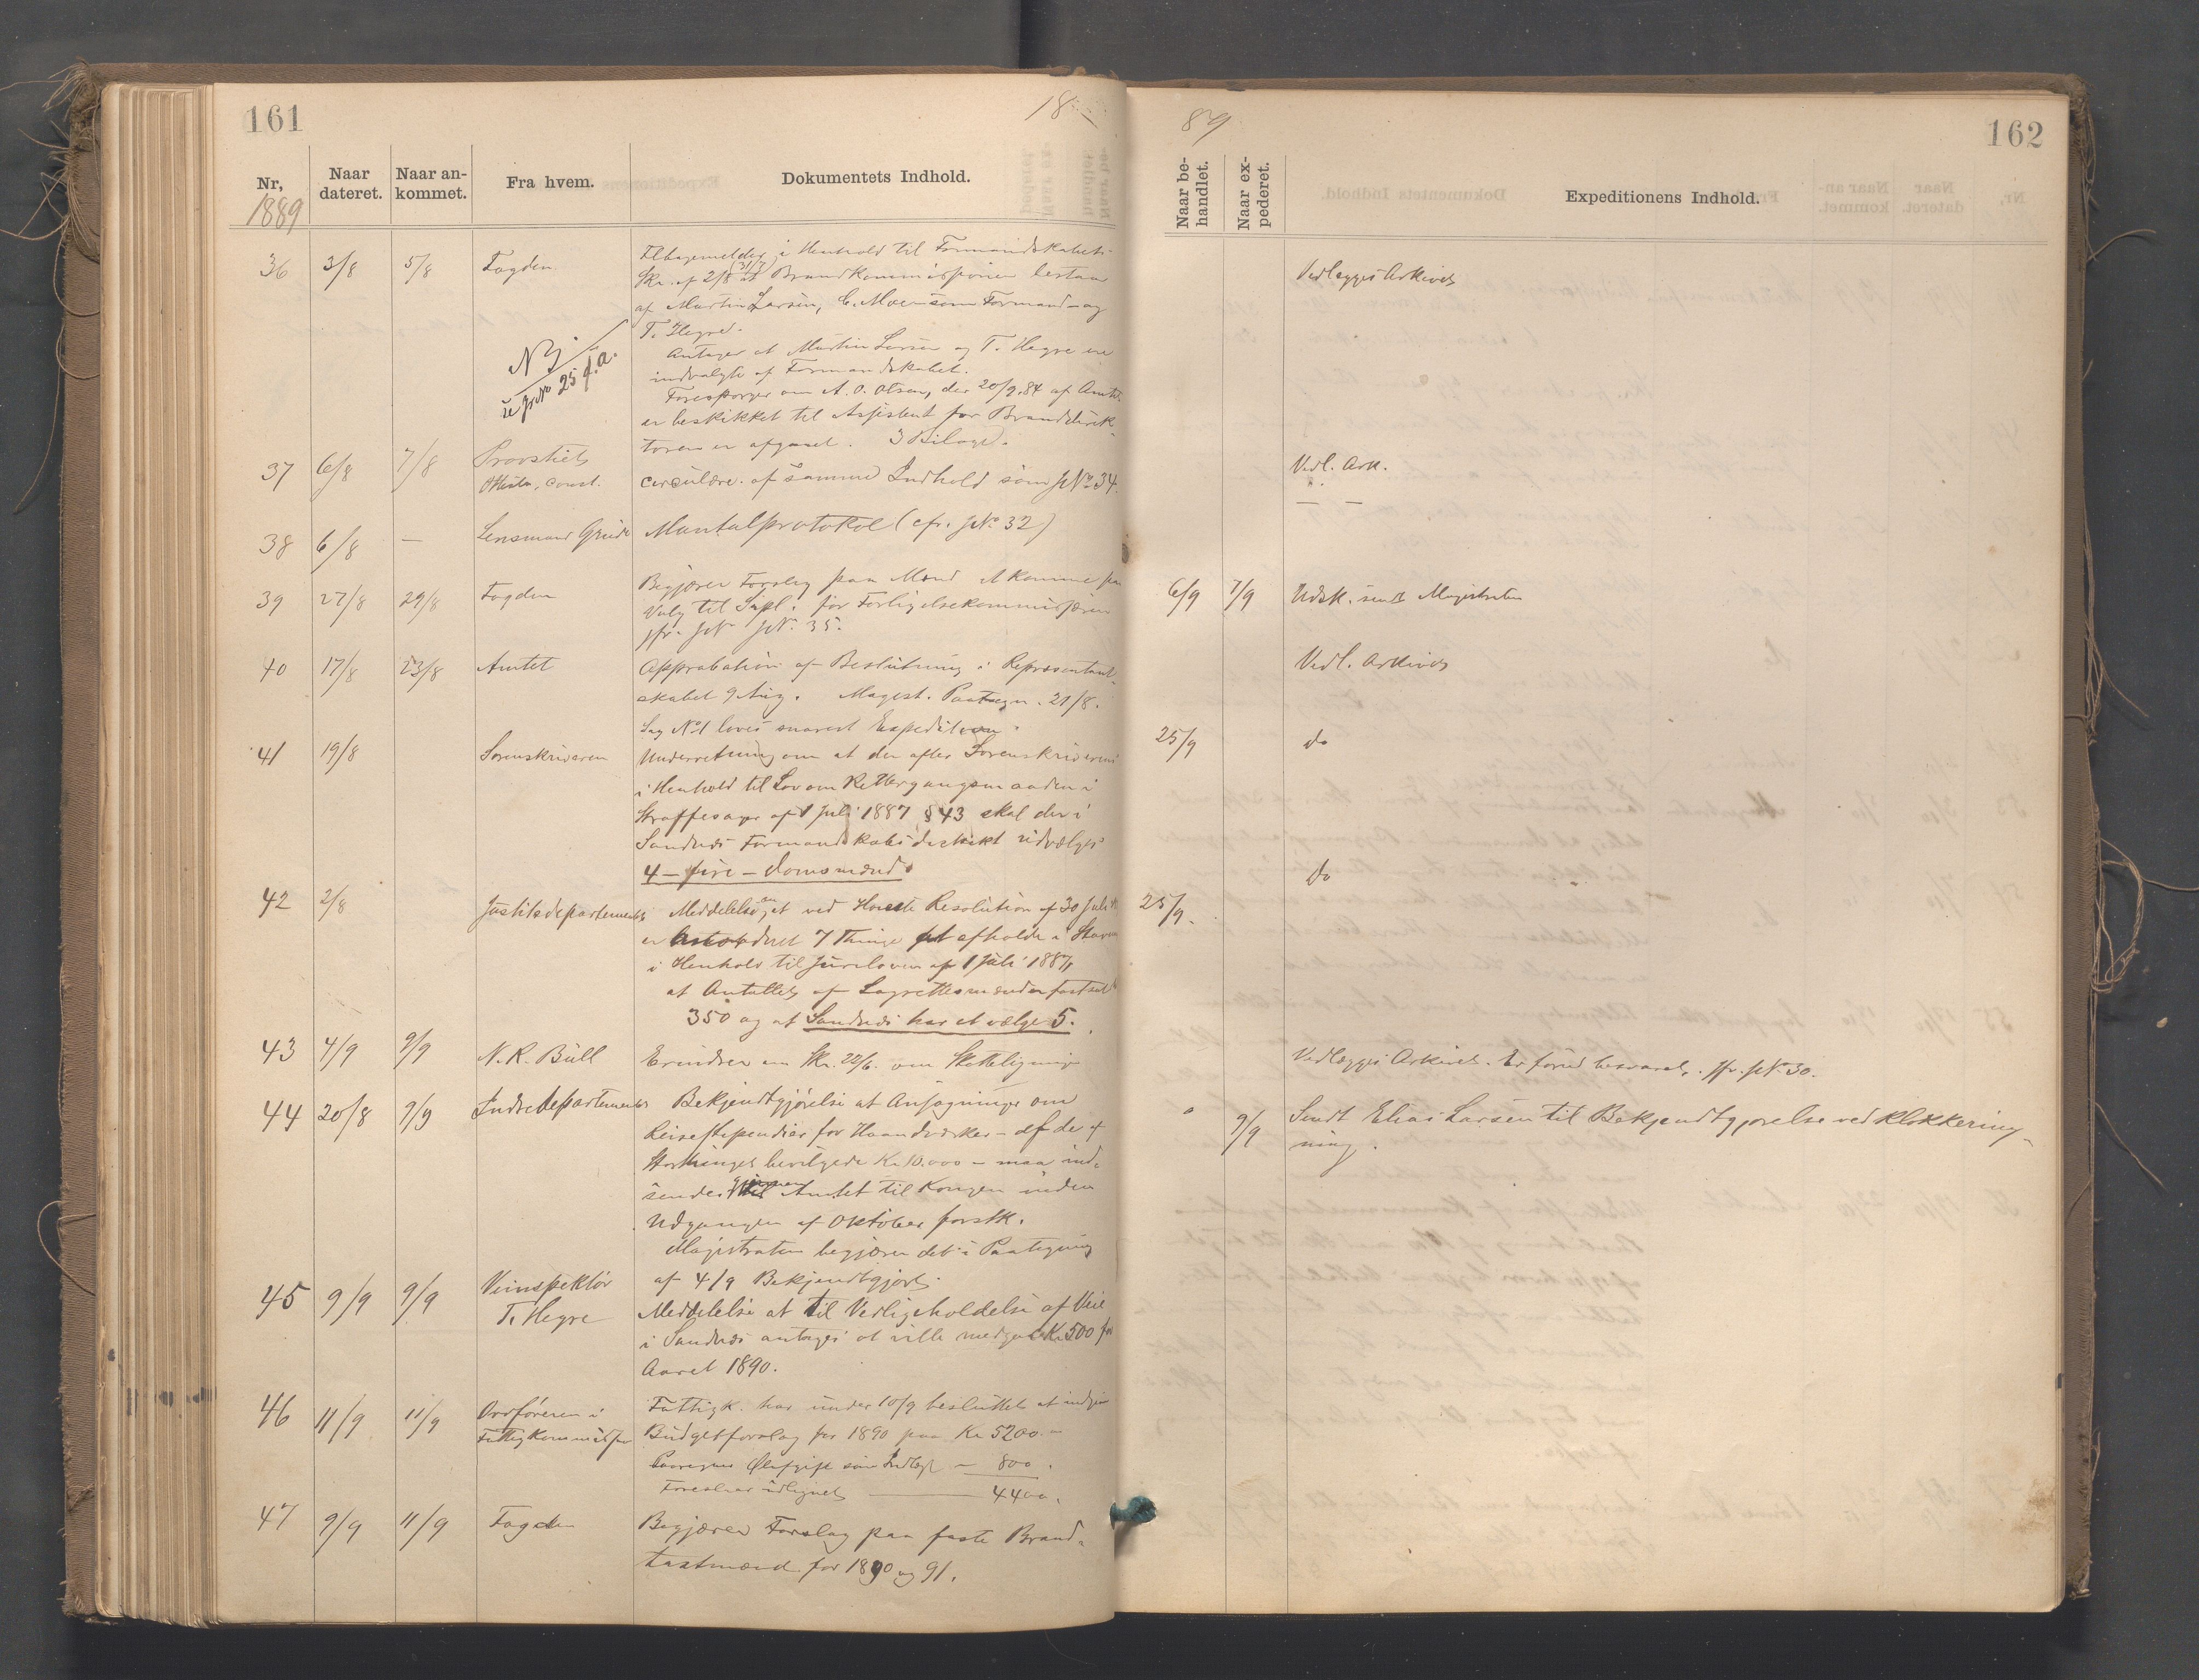 161
18
89
162
Nr,
1889
Naar dateret.
Naar ankommet.
Fra hvem.
Dokumentets Indhold.
Naar behandlet.
Naar expederet.
Expeditionens Indhold.
36 3/8 5/8 Fogden i Henhold til Formandskabets
Skr. af 2/8 (31/7) at Brandkommissionen bestaar
af Martin Larsen, C. Moen som Formand og
T. Hegre.
NB.
se No 25 f.a.
Antager at Martin Larsen og T. Hegre ere
indvalgte af Formandskabet.
Forespørger om A. O. Olsen, der 20/9 84 af Amtet
er beskikket til Assistent for Branddirek-
toren er afgaaet. 3 Bilage.
Vedlægges Arkivet
37 6/8 7/8 Provstiet
const. circulære af samme Indhold som JNo 34.
Vedl. Ark.
38 6/8 — Lensmand Grude Mantalprotokol (cfr. JNo 32)
— —
39 27/8 29/8 Fogden Begjærer Forslag paa Mænd at komme paa
Valg til Supl. for Forligelsekommissæren
jfr. JNo 35.
6/9 7/9 Udsk. sendt Magistraten
40 17/8 23/8 Amtet Approbation af Beslutning i Repræsentant-
skabet 9 Aug. Magist. Paategn. 21/8.
Sag No 1 loves snarest Expedition.
Vedl. Arkivet
41 19/8 Sorenskriveren Underretning om at der efter Sorenskriveren
i Henhold til Lov om Rettergangsmaaden i
Straffesager af 1 Juli 1887 § 43 skal der i
Sandnes Formandskabsdistrikt udvælges
4 – fire – domsmænd.
25/9 do
42 2/8 Justitsdepartementet Meddelelse om at ved Høieste Resolution af 30 Juli
er 7 Thinge at afholde i
i Henhold til Jureloven af 1 Juli 1887,
at Antallet af Lagrettemænder fastsat
350 og at Sandnes har at vælge 5.
25/9. do
43 4/9 9/9 N. R. Bull Erindrer om Skr. 22/6. om Skatteligning
Vedlægges Arkivet. Er forud besvaret. Jfr. JNo 30.
44 20/8 9/9 Indredepartementet Bekjendtgjørelse at Ansøgninger om
Reisestipendier for Haandværkere – af de af
Storthinget bevilgede Kr. 10.000 – maa ind-
sendes gjennem Amtet til Kongen inden
Udgangen af Oktober førstk.
Magistraten begjærer det i Paategning
af 4/9 Bekjendtgjort.
9/9 Sendt Elias Larsen til Bekjendtgjørelse ved Klokkering-
ning.
45 9/9 9/9 Veiinspektør
T. Hegre Meddelelse at til Vedligeholdelse af Veie
i Sandnes antages at ville medgaa Kr. 500 for
Aaret 1890.
46 11/9 11/9 Ordføreren i
Fattigkommis. Fattigk. har under 10/9 besluttet at indgive
Budgetforslag for 1890 paa Kr. 5200.–
Paaregnes Ølafgift som Indtægt – 800.
Foreslaar udlignet —— 4400.
47 9/9 11/9 Fogden Begjærer Forslag paa faste Brand-
taxtmænd for 1890 og 91.